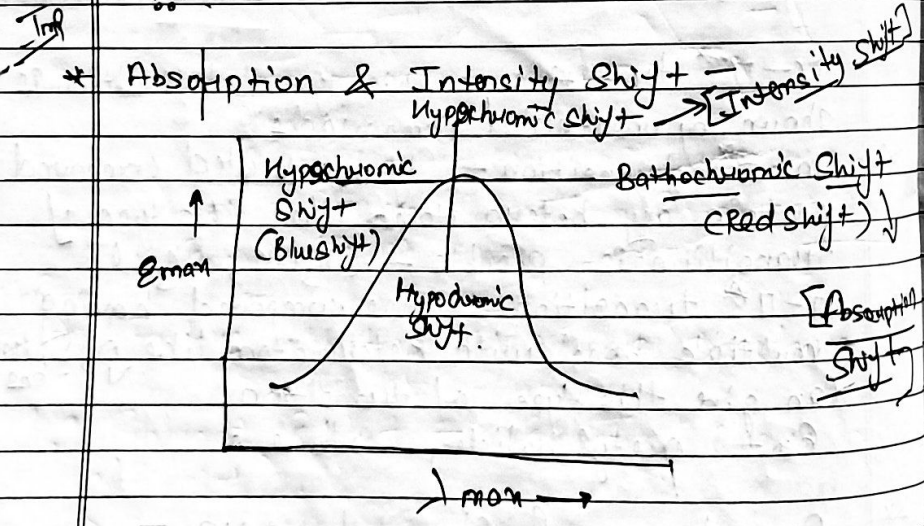 Imp
* Absorption & Intensity Shift —
Hyperchromic Shift → [Intensity Shift]
Hypsochromic
Shift
(Blue shift)
Bathochromic Shift
(Red shift) ↓
↑
εmax
Hypochromic
Shift.
[Absorption
Shift]
λ max →